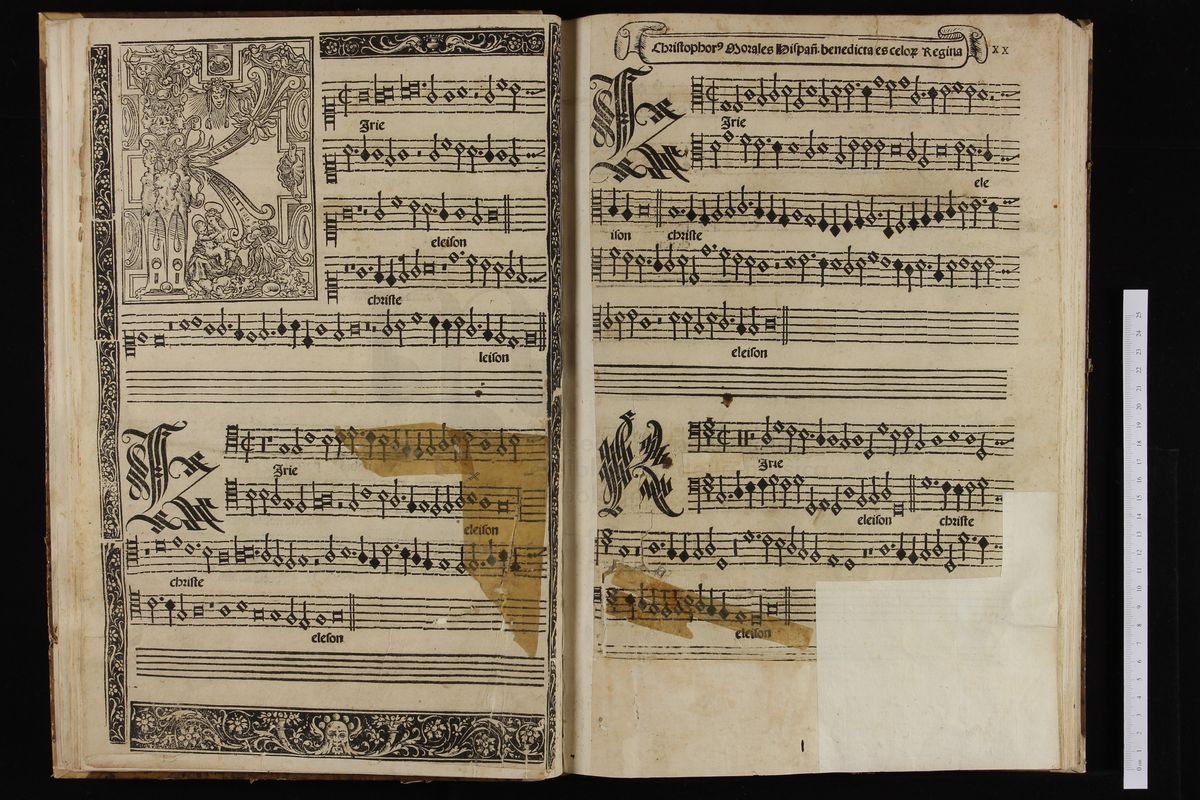 K
Jrie
eleison
christe
leison
Jrie
eleison
christe
eleson
Christophorꝰ Morales Hispañ. benedicta es celoꝝ Regina
XX
Jrie
ele
ison christe
eleison
Jrie
eleison christe
eleison
0 cm 1 2 3 4 5 6 7 8 9 10 11 12 13 14 15 16 17 18 19 20 21 22 23 24 25